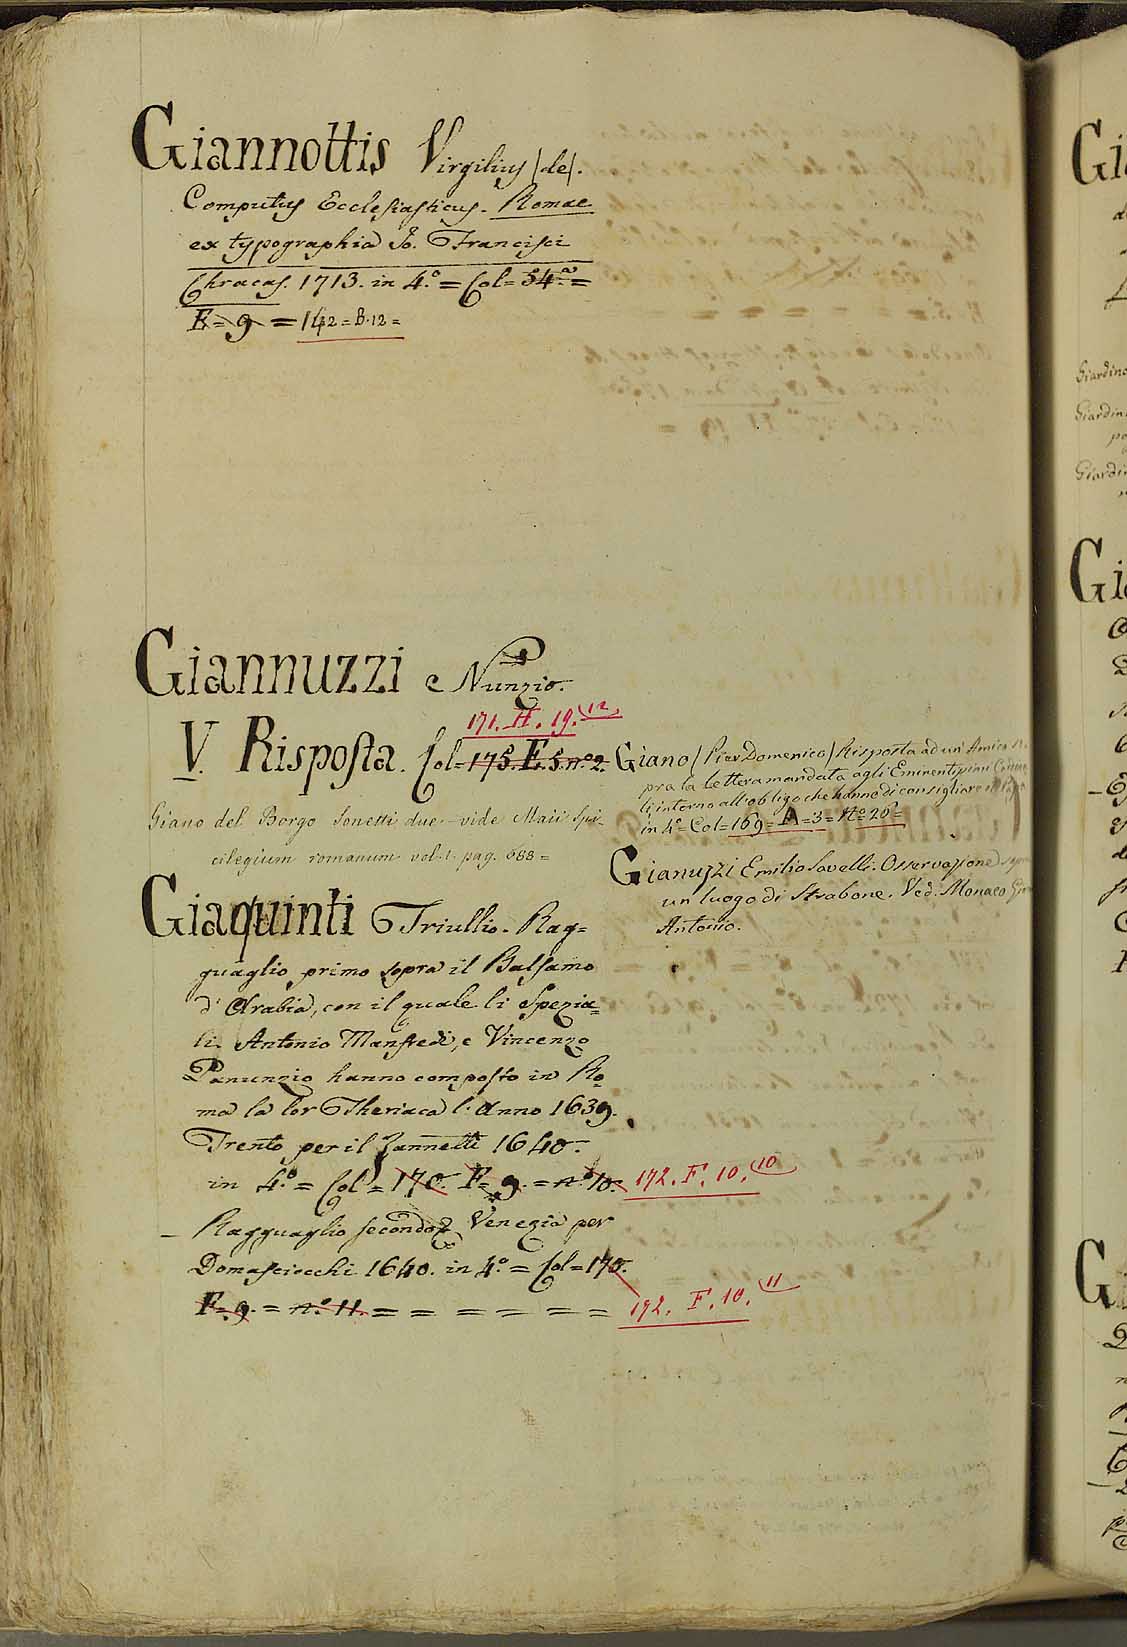 Giannottis Virgilius (de).
Computus Ecclesiasticus. Romae
ex typographia Jo. Francisci
Chracas. 1713. in 4.º = Col = 54.ª =
E = 9 = 142 = B. 12 =
Giannuzzi e Nunzio.
171. H. 19. 12
V. Risposta. Col = 175. E. 5. nº 2.
Giano del Borgo Sonetti due - vide Maii Spi-
cilegium romanum vol. 1. pag. 688 =
Giaquinti Triullio. Rag=
guaglio primo sopra il Balsamo
d'Arabia, con il quale li Spezia=
li Antonio Manfredi, e Vincenzo
Panunzio hanno composto in Ro=
ma la lor Theriaca l'Anno 1639.
Trento per il Zannetti 1640.
in 4.º = Col = 170. F = 9. = nº 10. 172. F. 10. 10
– Ragguaglio secondo Venezia per
Domasciocchi 1640. in 4.º = Col = 170.
F = 9. = nº 11. = = = = = = = 172. F. 10. 11
Giano (Pier Domenico) Risposta ad un' Amico
pra la lettera mandata agli Eminentissimi
li intorno all' obligo che hanno di consigliare
in 4º Col = 169 = A = 3 = Nº 26 =
Gianuzzi Emilio Savelli. Osservazione
un luogo di Strabone. Ved. Monaco
Antonio.
Giardin
Giardin
Giardi